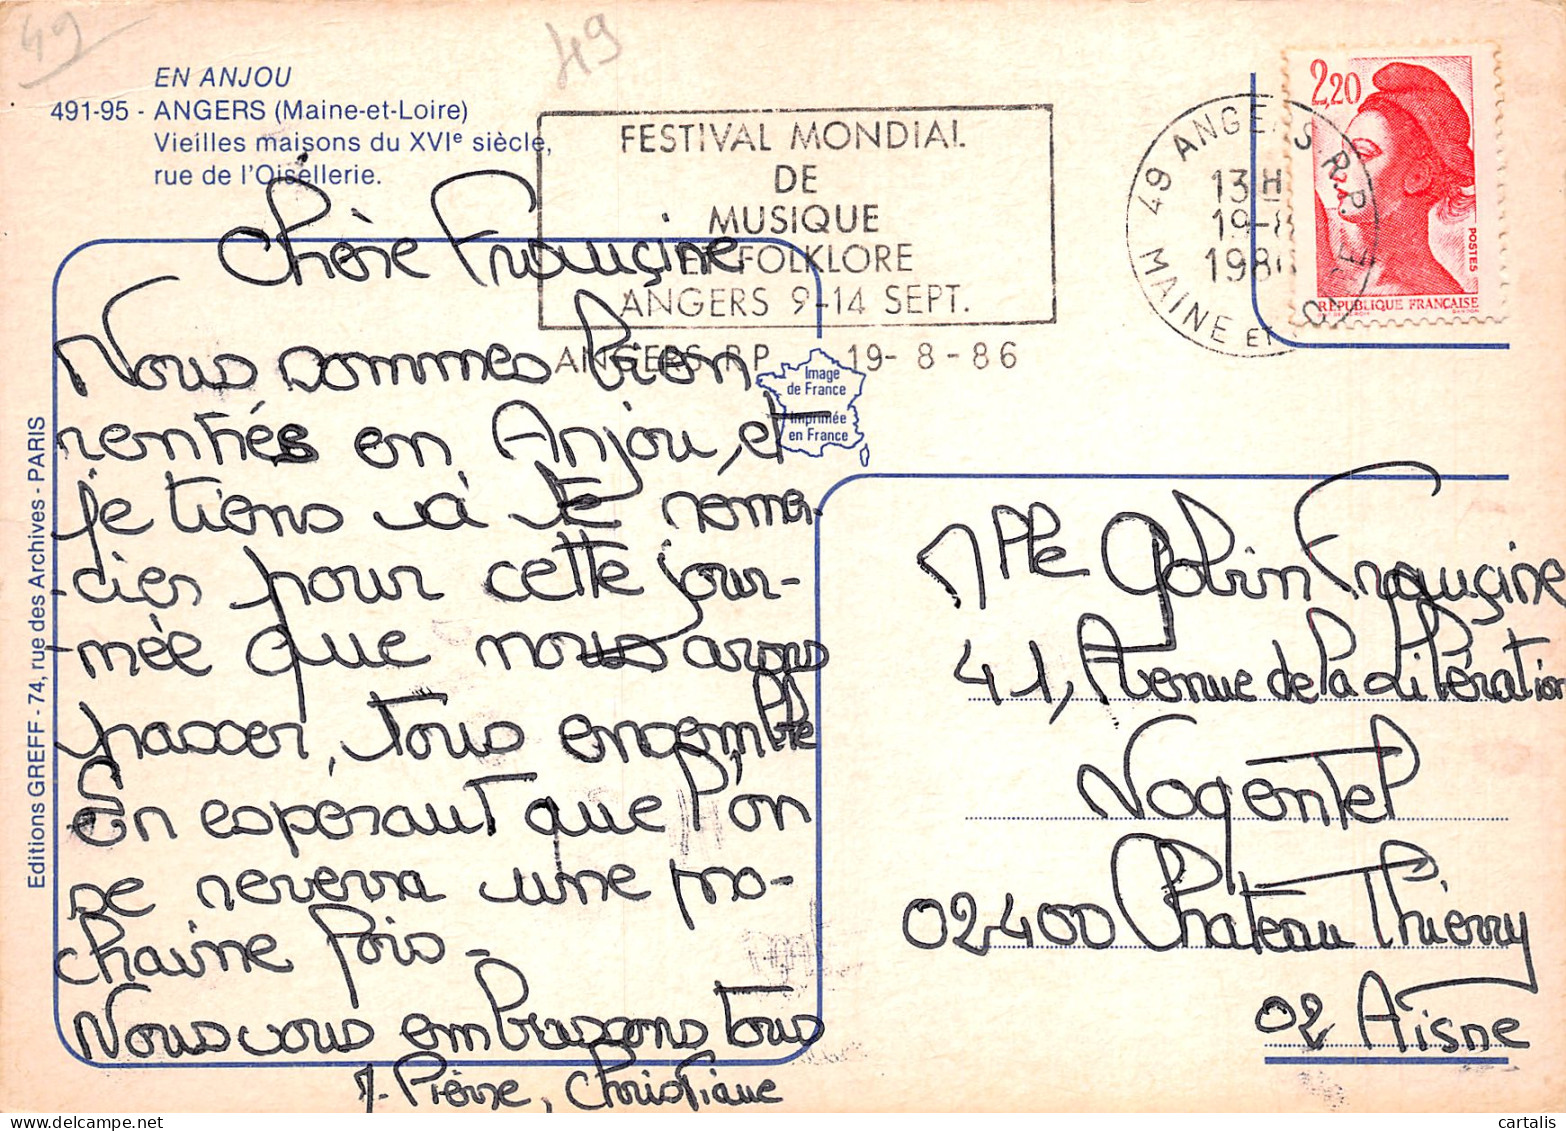 49
49
EN ANJOU
491-95 - ANGERS (Maine-et-Loire)
Vieilles maisons du XVIe siècle,
rue de l'Oisellerie.
FESTIVAL MONDIAL
DE
MUSIQUE
ET FOLKLORE
ANGERS 9-14 SEPT.
ANGERS RP 19-8-86
49 ANGERS R.P.
13H
19-8
1986
MAINE ET
2,20
POSTES
REPUBLIQUE FRANÇAISE
Image
de France
Imprimée
en France
Editions GREFF - 74, rue des Archives - PARIS
Chère Françine
Nous sommes bien
rentrés en Anjou, et
je tiens à te remer-
-cier pour cette jour-
-née que nous avons
passer, tous ensemble
En espérant que l'on
se reverra une pro-
chaine fois -
Nous vous embrassons tous
J-Pierre, Christiane
Mlle Gobin Françine
41, Avenue de la Libération
Nogentel
02400 Chateau Thierry
02 Aisne
cartalis